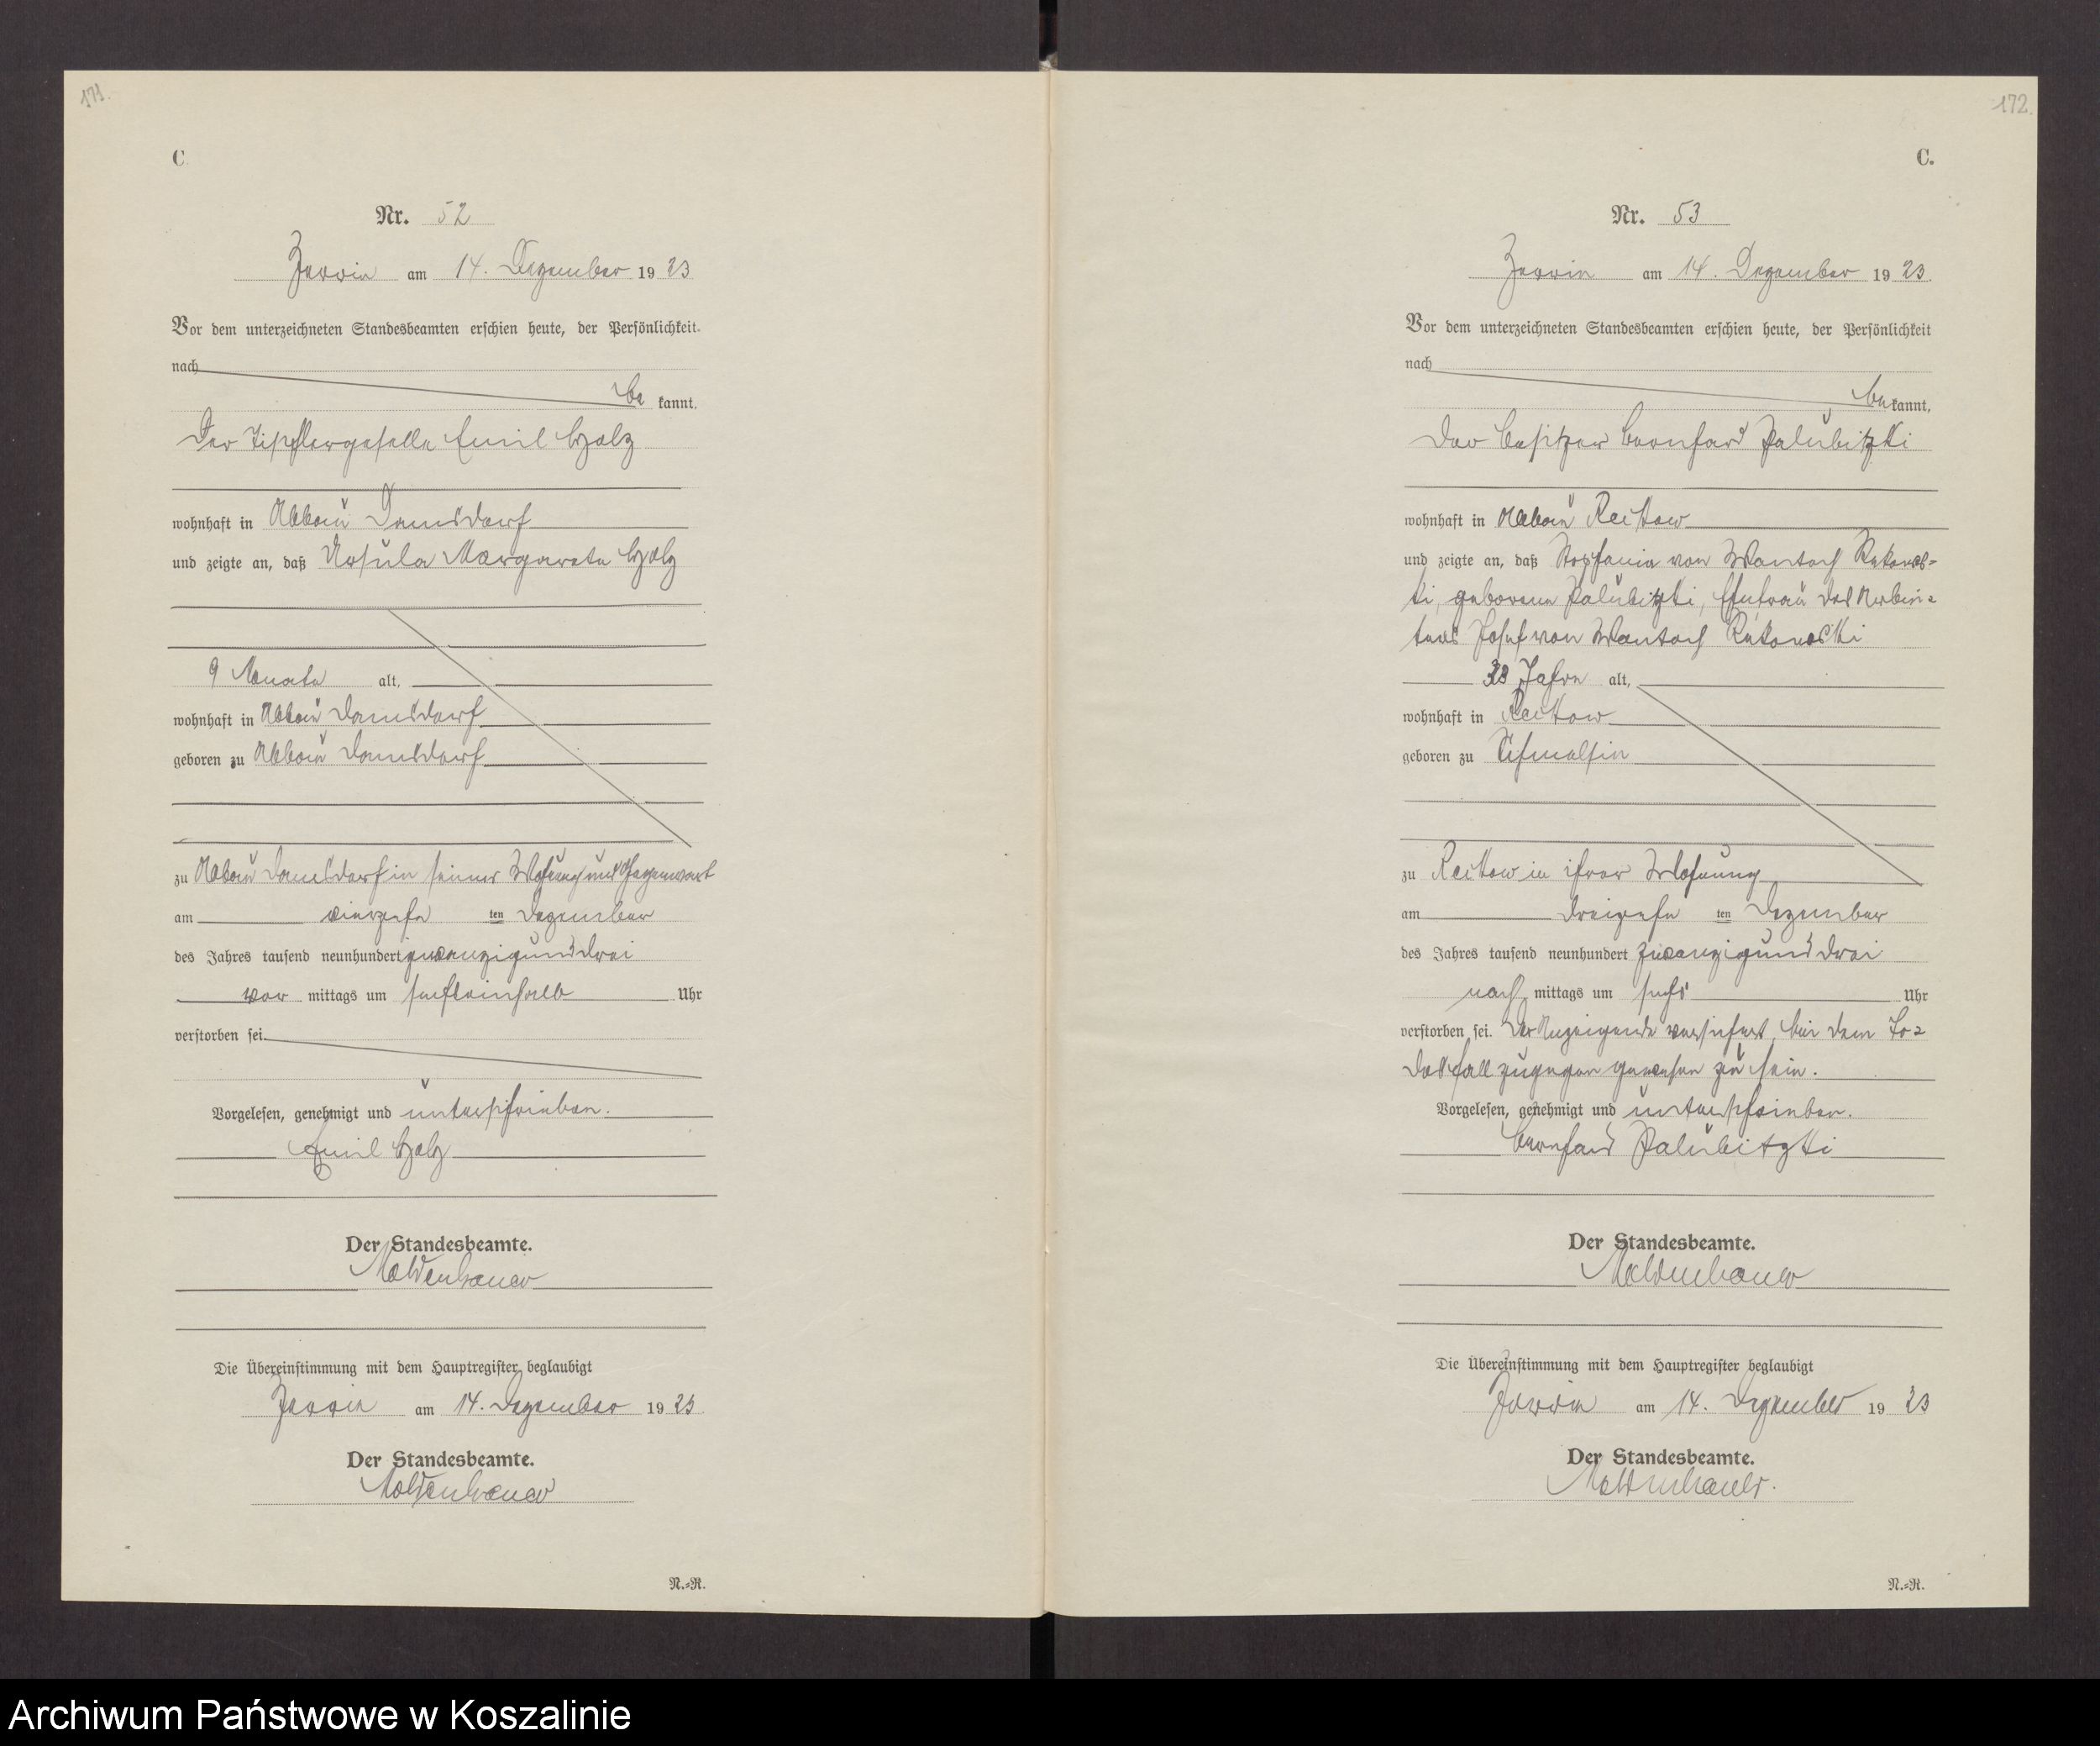 171.
C
Nr. 52
Zerrin am 14. Dezember 1923
Vor dem unterzeichneten Standesbeamten erschien heute, der Persönlichkeit
nach
be kannt,
Der Tischlergeselle Emil Holz
wohnhaft in Abbau Damsdorf
und zeigte an, daß Ursula Margarete Holz
9 Monate alt,
wohnhaft in Abbau Damsdorf
geboren zu Abbau Damsdorf
zu Abbau Damsdorf in seiner Wohnung und Gegenwart
am vierzehn ten Dezember
des Jahres tausend neunhundert zwanzigunddrei
vor mittags um sechseinhalb Uhr
verstorben sei.
Vorgelesen, genehmigt und unterschrieben.
Emil Holz
Der Standesbeamte.
Moldenhauer
Die Übereinstimmung mit dem Hauptregister beglaubigt
Zerrin am 14. Dezember 1923
Der Standesbeamte.
Moldenhauer
N.=R.
172.
C.
Nr. 53
Zerrin am 14. Dezember 1923.
Vor dem unterzeichneten Standesbeamten erschien heute, der Persönlichkeit
nach
be kannt,
Der Besitzer Bernhard Palubitzki
wohnhaft in Abbau Reckow
und zeigte an, daß Stephania von Wantoch Rekows=
ki, geborene Palubitzki, Ehefrau des Arbei=
ters Josef von Wantoch Rekowski
38 Jahre alt,
wohnhaft in Reckow
geboren zu
zu Reckow in ihrer Wohnung
am dreizehn ten Dezember
des Jahres tausend neunhundert zwanzigunddrei
nach mittags um sechs Uhr
verstorben sei. Der Anzeigende versichert, bei dem To=
desfall zugegen gewesen zu sein.
Vorgelesen, genehmigt und unterschrieben.
Bernhard Palubitzki
Der Standesbeamte.
Moldenhauer
Die Übereinstimmung mit dem Hauptregister beglaubigt
Zerrin am 14. Dezember 1923
Der Standesbeamte.
Moldenhauer.
N.=R.
Archiwum Państwowe w Koszalinie